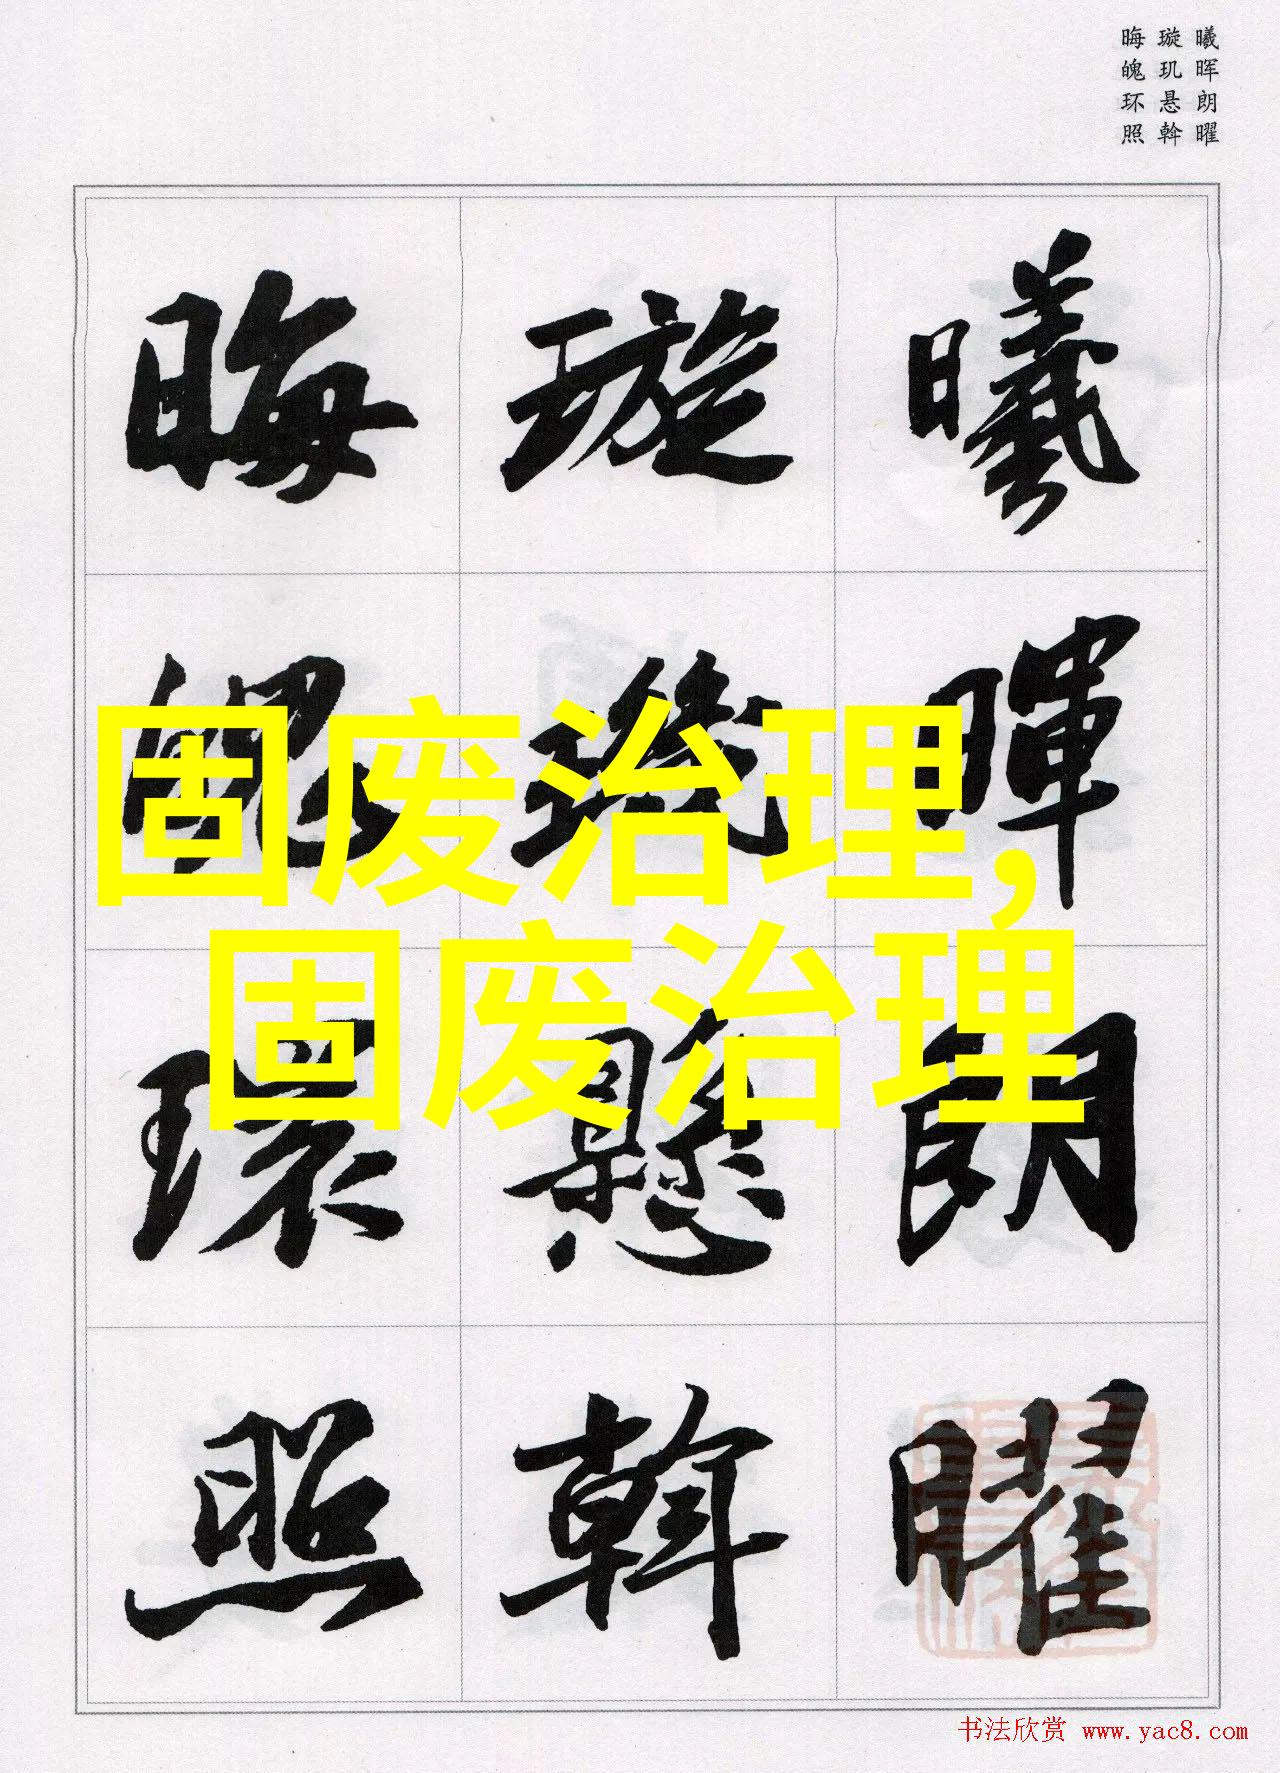 曦晖朗曜
璇玑悬斡
晦魄环照
曦暉朗曜
璇璣懸斡
晦魄環照
固废治理,
固废治理
书法欣赏 www.yac8.com